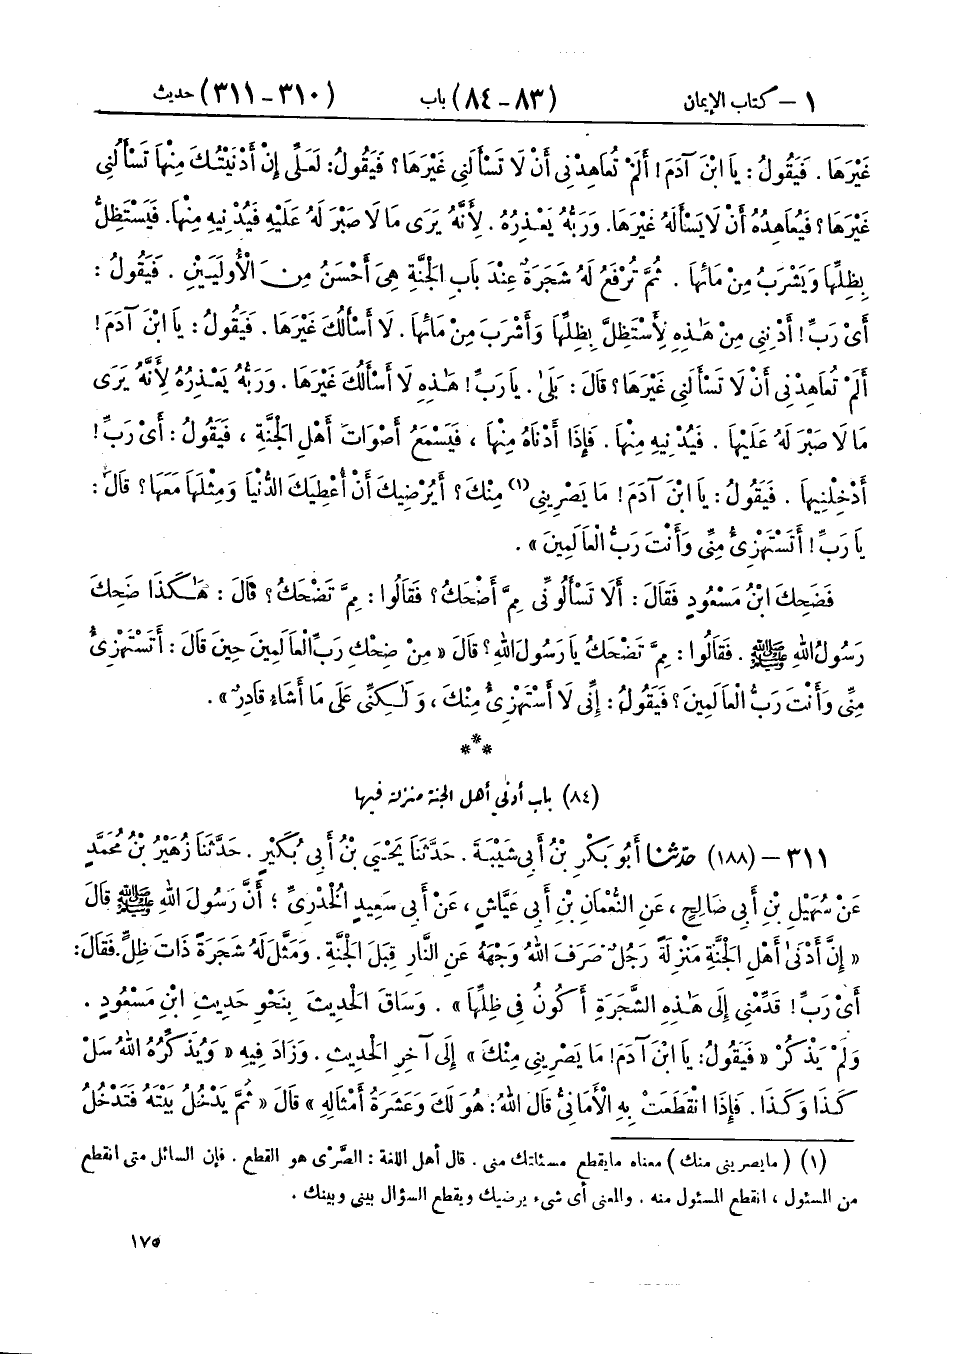 ١ – كتاب الإيمان (٨٣ – ٨٤) باب (٣١٠ – ٣١١) حديث
غَيْرَهَا . فَيَقُولُ : يَا ابْنَ آدَمَ ! أَلَمْ تُعَاهِدْنِى أَنْ لَا تَسْأَلَنِى غَيْرَهَا ؟ فَيَقُولُ : لَعَلِّى إِنْ أَدْنَيْتُكَ مِنْهَا تَسْأَلُنِى
غَيْرَهَا ؟ فَيُعَاهِدُهُ أَنْ لَا يَسْأَلَهُ غَيْرَهَا . وَرَبُّهُ يَعْذِرُهُ . لِأَنَّهُ يَرَى مَا لَا صَبْرَ لَهُ عَلَيْهِ فَيُدْنِيهِ مِنْهَا . فَيَسْتَظِلُّ
بِظِلِّهَا وَيَشْرَبُ مِنْ مَائِهَا . ثُمَّ تُرْفَعُ لَهُ شَجَرَةٌ عِنْدَ بَابِ الْجَنَّةِ هِىَ أَحْسَنُ مِنَ الْأُولَيَيْنِ . فَيَقُولُ :
أَىْ رَبِّ ! أَدْنِنِى مِنْ هَٰذِهِ لِأَسْتَظِلَّ بِظِلِّهَا وَأَشْرَبَ مِنْ مَائِهَا . لَا أَسْأَلُكَ غَيْرَهَا . فَيَقُولُ : يَا ابْنَ آدَمَ !
أَلَمْ تُعَاهِدْنِى أَنْ لَا تَسْأَلَنِى غَيْرَهَا ؟ قَالَ : بَلَىٰ . يَا رَبِّ ! هَٰذِهِ لَا أَسْأَلُكَ غَيْرَهَا . وَرَبُّهُ يَعْذِرُهُ لِأَنَّهُ يَرَى
مَا لَا صَبْرَ لَهُ عَلَيْهَا . فَيُدْنِيهِ مِنْهَا . فَإِذَا أَدْنَاهُ مِنْهَا ، فَيَسْمَعُ أَصْوَاتَ أَهْلِ الْجَنَّةِ ، فَيَقُولُ : أَىْ رَبِّ !
أَدْخِلْنِيهَا . فَيَقُولُ : يَا ابْنَ آدَمَ ! مَا يَصْرِينِى (١) مِنْكَ ؟ أَيُرْضِيكَ أَنْ أُعْطِيَكَ الدُّنْيَا وَمِثْلَهَا مَعَهَا ؟ قَالَ :
يَا رَبِّ ! أَتَسْتَهْزِئُ مِنِّى وَأَنْتَ رَبُّ الْعَالَمِينَ » .
فَضَحِكَ ابْنُ مَسْعُودٍ فَقَالَ : أَلَا تَسْأَلُونِّى مِمَّ أَضْحَكُ ؟ فَقَالُوا : مِمَّ تَضْحَكُ ؟ قَالَ : هَٰكَذَا ضَحِكَ
رَسُولُ اللهِ ﷺ . فَقَالُوا : مِمَّ تَضْحَكُ يَا رَسُولَ اللهِ ؟ قَالَ « مِنْ ضِحْكِ رَبِّ الْعَالَمِينَ حِينَ قَالَ : أَتَسْتَهْزِئُ
مِنِّى وَأَنْتَ رَبُّ الْعَالَمِينَ ؟ فَيَقُولُ : إِنِّى لَا أَسْتَهْزِئُ مِنْكَ ، وَلَٰكِنِّى عَلَى مَا أَشَاءُ قَادِرٌ » .
***
(٨٤) باب أدنى أهل الجنة منزلة فيها
٣١١ – (١٨٨) حدثنا أَبُو بَكْرِ بْنُ أَبِى شَيْبَةَ . حَدَّثَنَا يَحْيَى بْنُ أَبِى بُكَيْرٍ . حَدَّثَنَا زُهَيْرُ بْنُ مُحَمَّدٍ
عَنْ سُهَيْلِ بْنِ أَبِى صَالِحٍ ، عَنِ النُّعْمَانِ بْنِ أَبِى عَيَّاشٍ ، عَنْ أَبِى سَعِيدٍ الْخُدْرِىِّ ؛ أَنَّ رَسُولَ اللهِ ﷺ قَالَ
« إِنَّ أَدْنَىٰ أَهْلِ الْجَنَّةِ مَنْزِلَةً رَجُلٌ صَرَفَ اللهُ وَجْهَهُ عَنِ النَّارِ قِبَلَ الْجَنَّةِ . وَمَثَّلَ لَهُ شَجَرَةً ذَاتَ ظِلٍّ . فَقَالَ :
أَىْ رَبِّ ! قَدِّمْنِى إِلَى هَٰذِهِ الشَّجَرَةِ أَكُونُ فِى ظِلِّهَا » . وَسَاقَ الْحَدِيثَ بِنَحْوِ حَدِيثِ ابْنِ مَسْعُودٍ .
وَلَمْ يَذْكُرْ « فَيَقُولُ : يَا ابْنَ آدَمَ ! مَا يَصْرِينِى مِنْكَ » إِلَى آخِرِ الْحَدِيثِ . وَزَادَ فِيهِ « وَيُذَكِّرُهُ اللهُ سَلْ
كَذَا وَكَذَا . فَإِذَا انْقَطَعَتْ بِهِ الْأَمَانِىُّ قَالَ اللهُ : هُوَ لَكَ وَعَشَرَةُ أَمْثَالِهِ » قَالَ « ثُمَّ يَدْخُلُ بَيْتَهُ فَتَدْخُلُ
(١) ( مايصرينى منك ) معناه مايقطع مسئلتك منى . قال أهل اللغة : الصَّرْى هو القطع . فإن السائل متى انقطع
من المسئول ، انقطع المسئول منه . والمعنى أى شىء يرضيك ويقطع السؤال بينى وبينك .
١٧٥